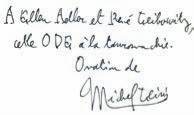 A Ellen Adler et René Leibowitz,
cette ODE à la tauromachie.
Ovation de
Michel Leiris